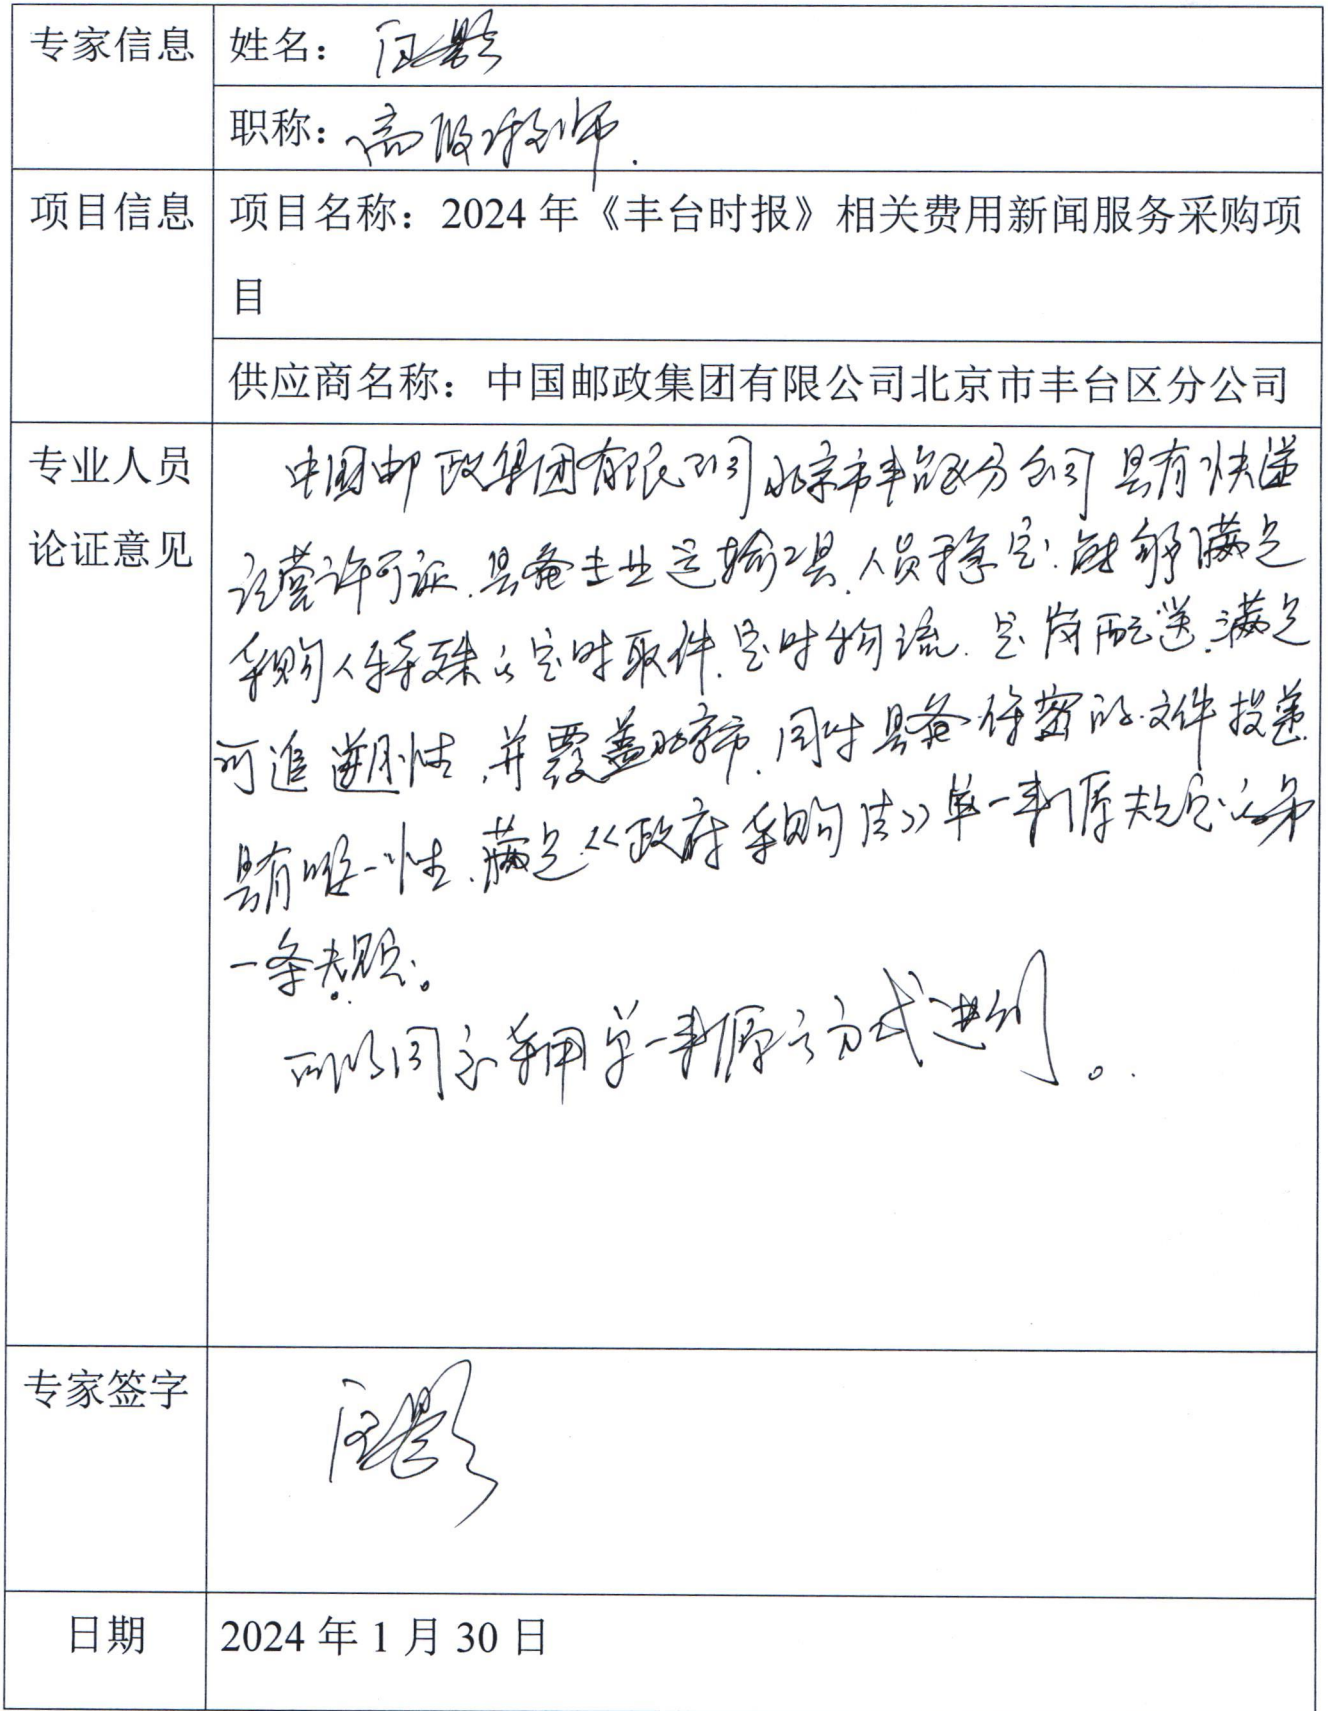 专家信息
姓名：
职称：高级工程师.
项目信息
项目名称：2024 年《丰台时报》相关费用新闻服务采购项
目
供应商名称：中国邮政集团有限公司北京市丰台区分公司
专业人员
论证意见
中国邮政集团有限公司北京市丰台区分公司具有快递
运营许可证.具备专业运输工具.人员稳定.能够满足
采购人特殊的定时取件.定时物流.定岗配送.满足
可追溯性.并覆盖北京市.同时具备保密的文件投递.
具有唯一性.满足《政府采购法》单一来源规定的第
一条规定。
所以同意采用单一来源方式进行。
专家签字
日期
2024 年 1 月 30 日